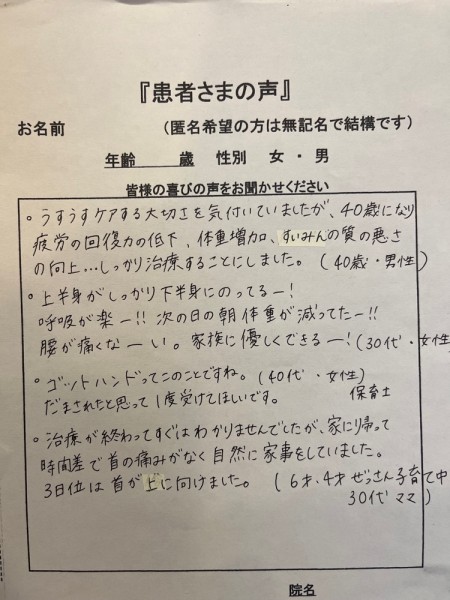 『患者さまの声』
お名前　　　　　　（匿名希望の方は無記名で結構です）
年齢　　　歳　性別　女・男
皆様の喜びの声をお聞かせください
◦うすうすケアする大切さを気付いていましたが、40歳になり
疲労の回復力の低下、体重増加、すいみんの質の悪さ
の向上…しっかり治療することにしました。（40歳・男性）
◦上半身がしっかり下半身にのってるー！
呼吸が楽ー!! 次の日の朝体重が減ってたー!!
腰が痛くなーい。家族に優しくできるー！（30代・女性）
◦ゴットハンドってこのことですね。（40代・女性）
だまされたと思って1度受けてほしいです。　保育士
◦治療が終わってすぐはわかりませんでしたが、家に帰って
時間差で首の痛みがなく自然に家事をしていました。
3日位は首が上に向けました。（6才、4才ぜっさん子育て中
30代ママ）
院名